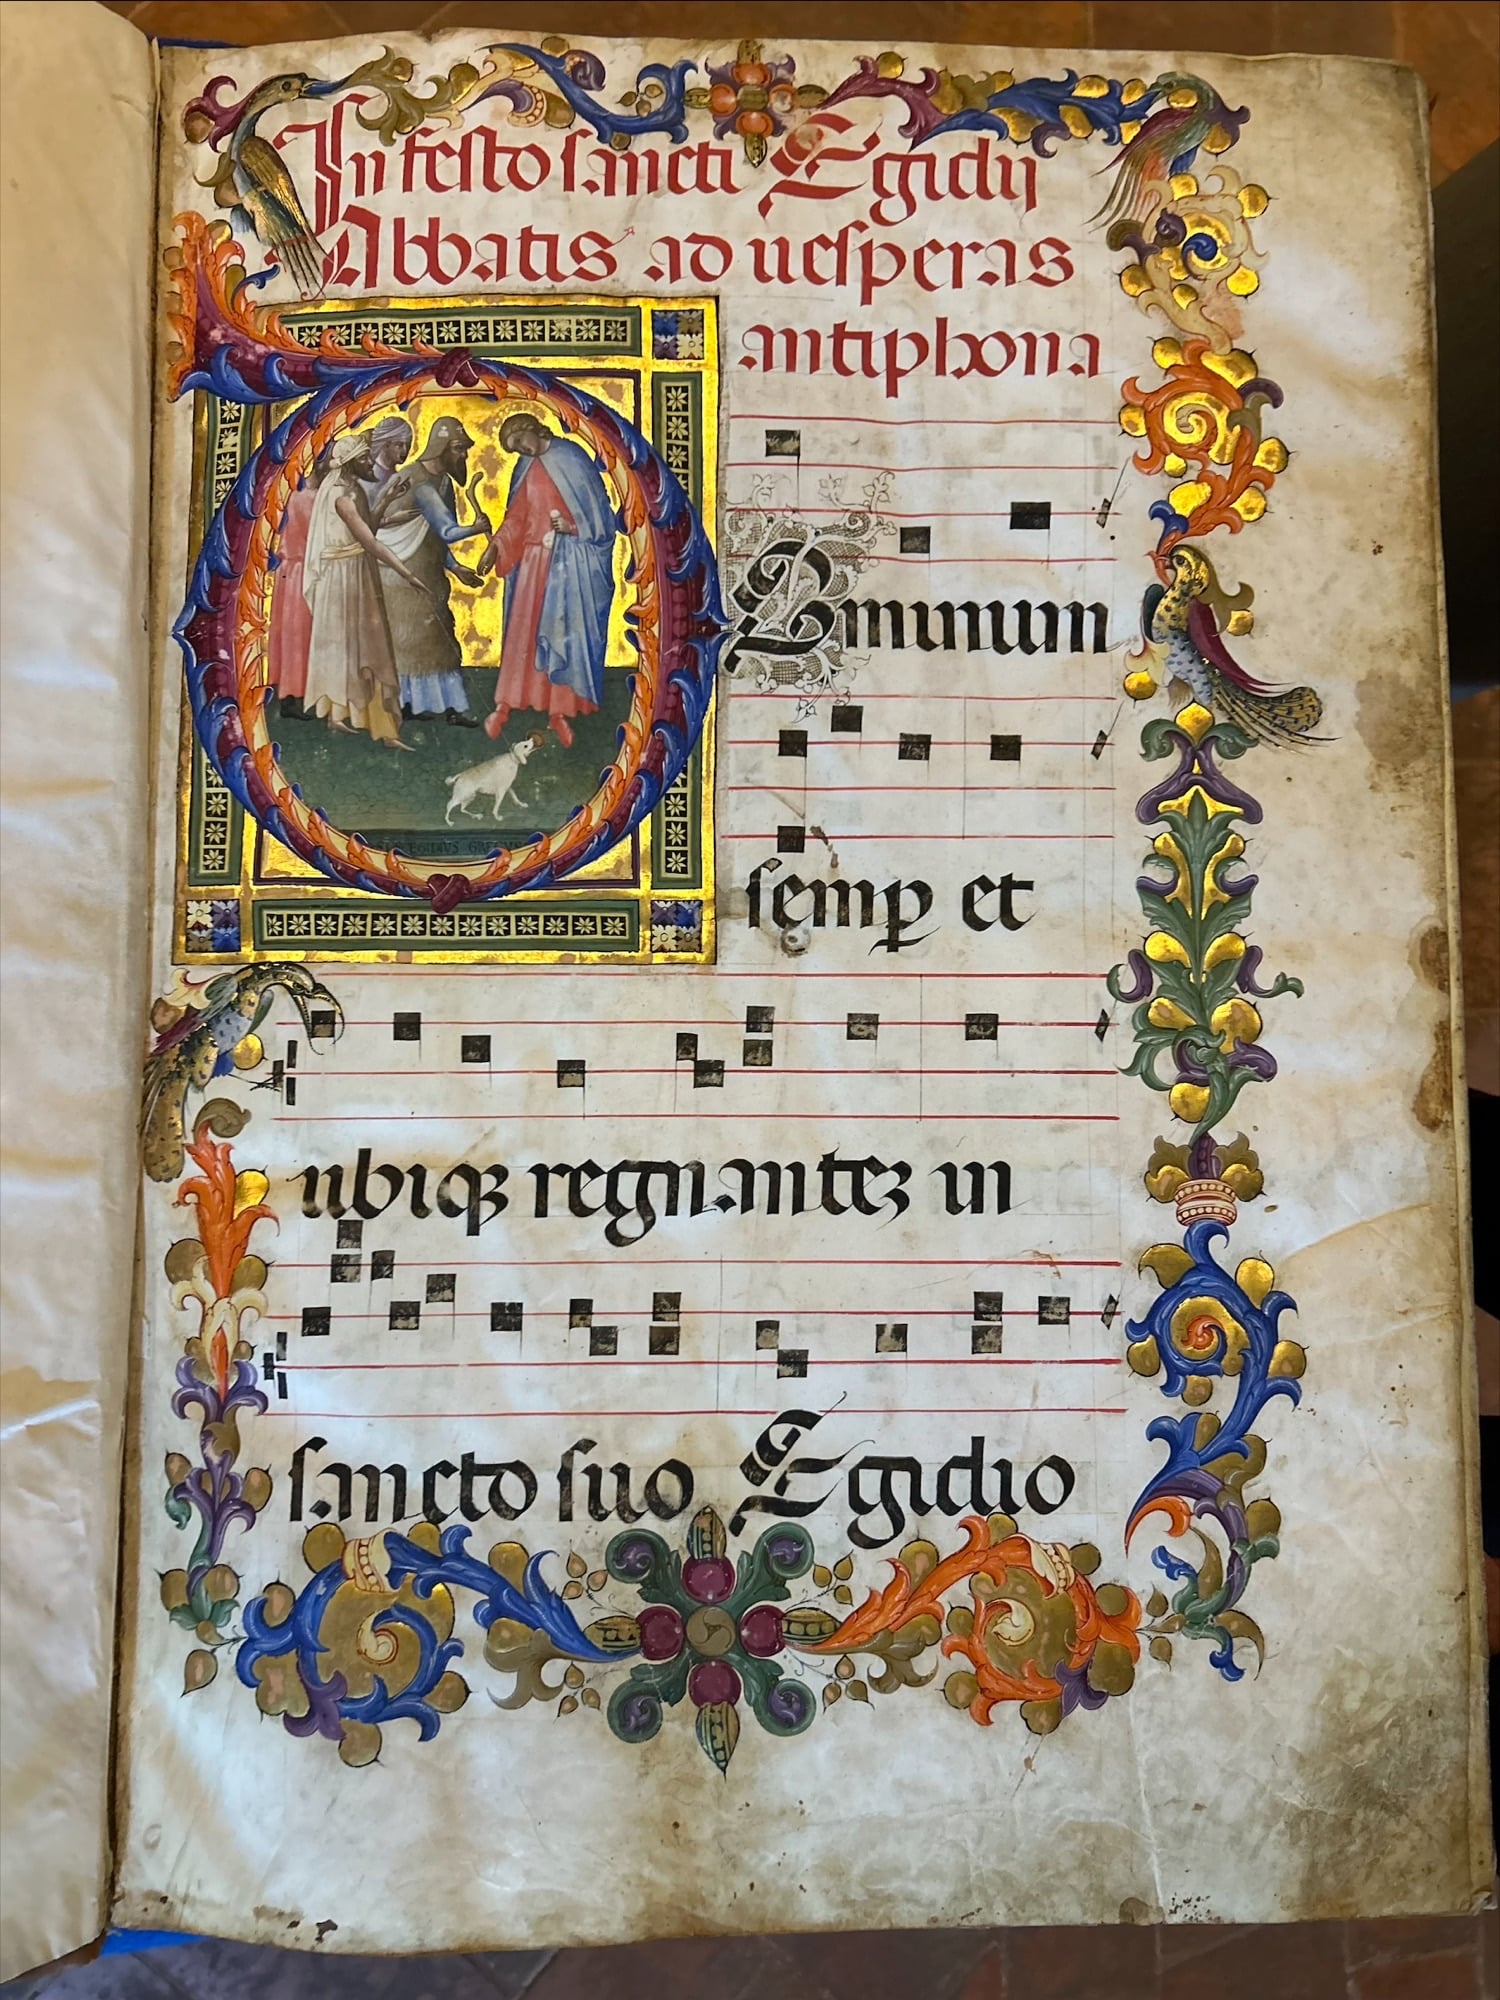 In festo sancti Egidij
Abbatis ad uesperas
antiphona
Ominum
semp et
EGIDIVS GRECVS
ubiqꝫ regnantez in
sancto suo Egidio